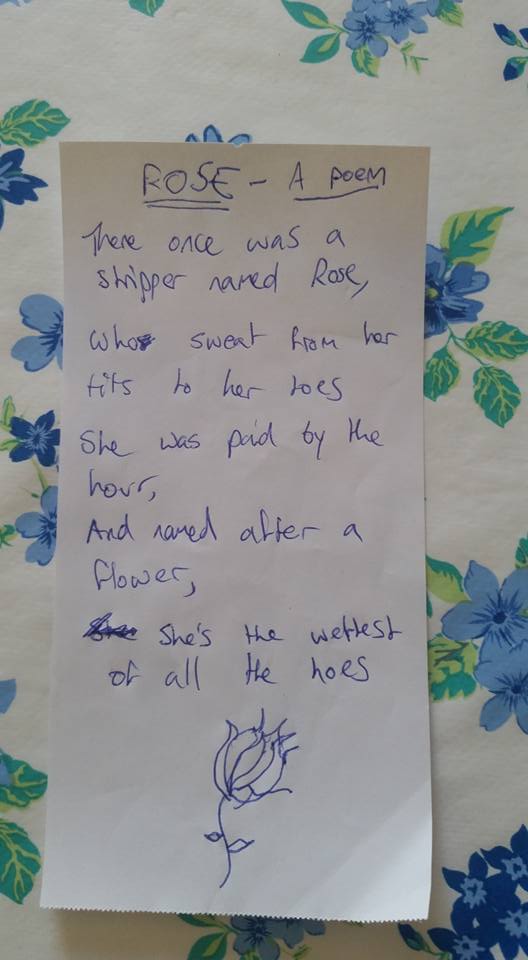 ROSE - A POEM
There once was a
stripper named Rose,
Who sweat from her
tits to her toes
She was paid by the
hour,
And named after a
flower,
She's the wettest
of all the hoes